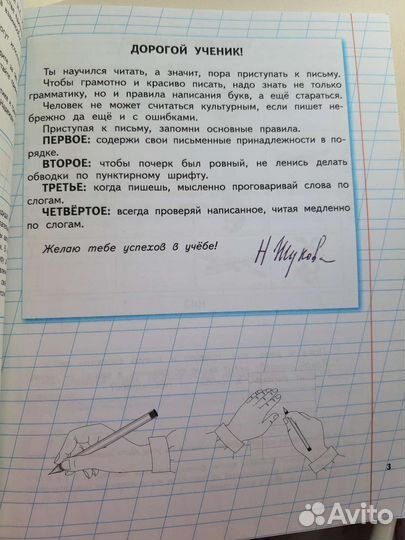 ДОРОГОЙ УЧЕНИК!
Ты научился читать, а значит, пора приступать к письму.
Чтобы грамотно и красиво писать, надо знать не только
грамматику, но и правила написания букв, а ещё стараться.
Человек не может считаться культурным, если пишет не-
брежно да ещё и с ошибками.
Приступая к письму, запомни основные правила.
ПЕРВОЕ: содержи свои письменные принадлежности в по-
рядке.
ВТОРОЕ: чтобы почерк был ровный, не ленись делать
обводки по пунктирному шрифту.
ТРЕТЬЕ: когда пишешь, мысленно проговаривай слова по
слогам.
ЧЕТВЁРТОЕ: всегда проверяй написанное, читая медленно
по слогам.
Желаю тебе успехов в учёбе!
Н Жукова
3
Avito